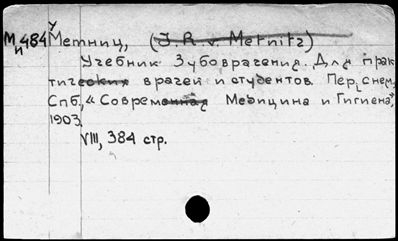 М у 484 Метниц, (J. R. v. Metnitz)
и Учебник Зубоврачения. Для прак
тических врачей и студентов. Пер. с нем.
Спб., "Современная Медицина и Гигиена",
1903.
VIII, 384 стр.